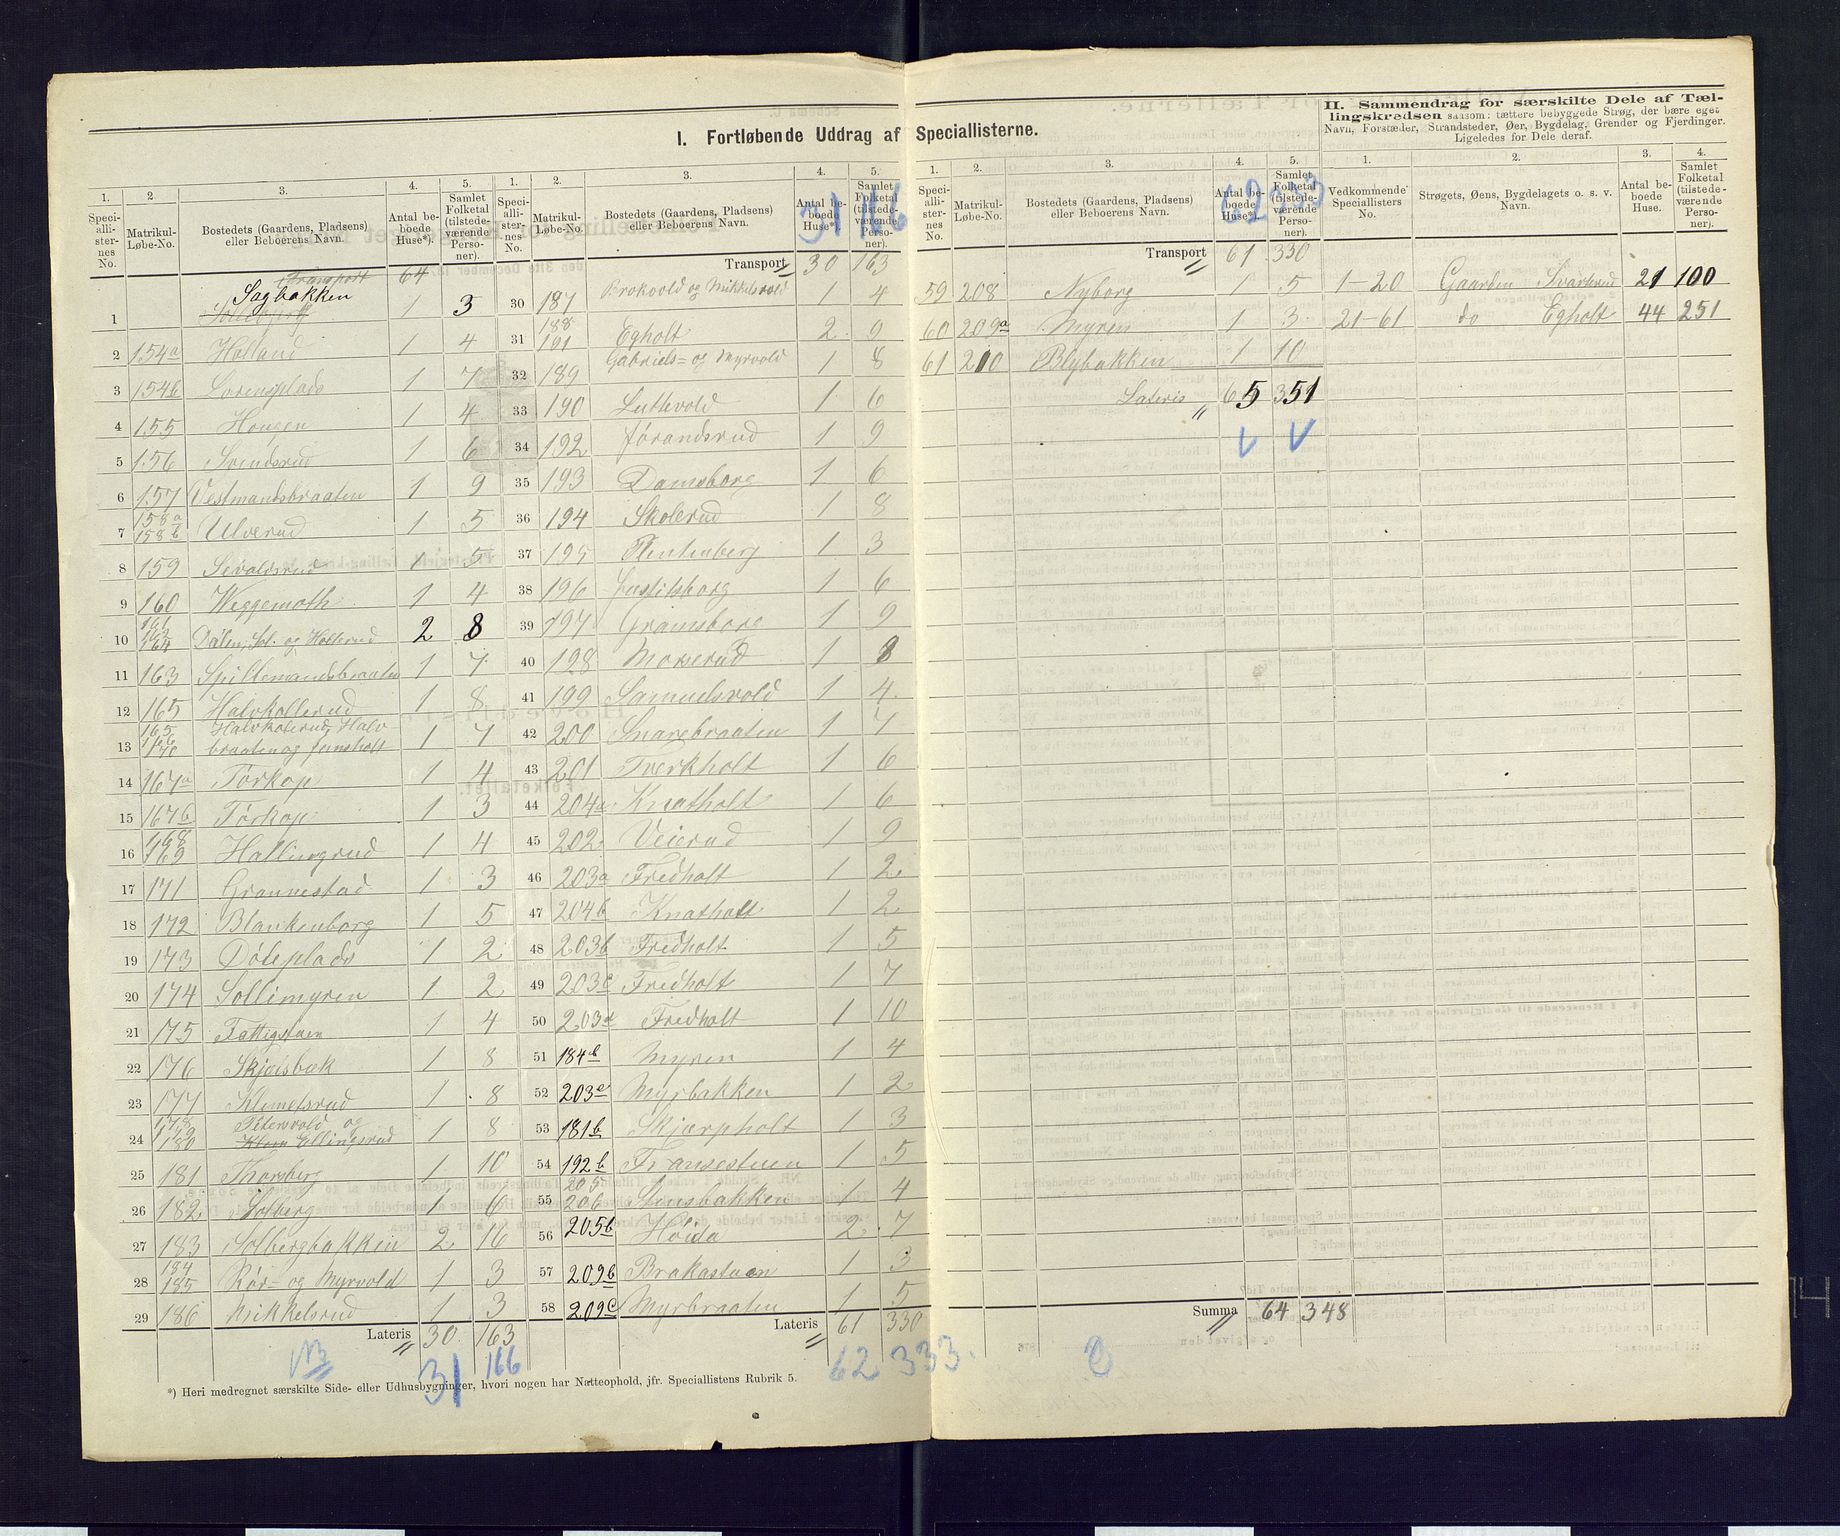 I. Fortløbende Uddrag af Speciallisterne.
II. Sammendrag for særskilte Dele af Tællingskredsen saasom: tættere bebyggede Strøg, der bære eget
Navn, Forstæder, Strandsteder, Øer, Bygdelag, Grender og Fjerdinger.
Ligeledes for Dele deraf.
1. 2. 3. 4. 5.
Speciallisternes No. Matrikul-Løbe-No. Bostedets (Gaardens, Pladsens) eller Beboerens Navn. Antal beboede Huse*). Samlet Folketal (tilstedeværende Personer).
Transport 64
1 Sagbakken 1 3
2 154a Holland 1 4
3 154b Lorensplads 1 7
4 155 Hougen 1 4
5 156 Svindsrud 1 6
6 157 Vestmandsbraaten 1 9
7 158a 158b Ulverud 1 5
8 159 Sivaldsrud 1 5
9 160 Weggemoth 1 4
10 164 Dølen, Sol. og Kollerud 2 8
11 163 Spillemandsbraaten 1 7
12 165 Halvkollerud 1 8
13 165 166 170 Halvkolerud, Halvbraaten og Jensholt 1 7
14 167a Torkop 1 4
15 167b Torkop 1 3
16 168 169 Hallingrud 1 4
17 171 Grannestad 1 3
18 172 Blankenborg 1 5
19 173 Døleplads 1 2
20 174 Sollimyren 1 2
21 175 Fattigstuen 1 4
22 176 Skjælsbæk 1 8
23 177 Klemetsrud 1 8
24 178 179 180 Petersvold og Ellingsrud 1 8
25 181 Thorsberg 1 10
26 182 Solberg 1 6
27 183 Solbergbakken 2 16
28 184 185 Rør- og Myrvold 1 3
29 186 Mikkelsrud 1 3
Lateris 30 163
NB 31 166
*) Heri medregnet særskilte Side- eller Udhusbygninger, hvori nogen har Natteophold, jfr. Speciallistens Rubrik 5.
1. 2. 3. 4. 5.
Speciallisternes No. Matrikul-Løbe-No. Bostedets (Gaardens, Pladsens) eller Beboerens Navn. Antal beboede Huse*). Samlet Folketal (tilstedeværende Personer).
31 166
Transport 30 163
30 187 Brokvold og Mikkelsvold 1 4
31 188 191 Egholt 2 9
32 189 Gabriels- og Myrvold 1 8
33 190 Luthvold 1 6
34 192 Jørandsrud 1 9
35 193 Damsborg 1 6
36 194 Skolerud 1 8
37 195 Plentenberg 1 3
38 196 Justitsborg 1 6
39 197 Gramsborg 1 9
40 198 Moserud 1 8
41 199 Samuelsvold 1 4
42 200 Snarebraaten 1 7
43 201 Tverkholt 1 6
44 204a Knatholt 1 6
45 202 Veierud 1 9
46 203a Fredholt 1 2
47 204b Knatholt 1 2
48 203b Fredholt 1 5
49 203c Fredholt 1 7
50 203d Fredholt 1 10
51 184b Myren 1 4
52 203e Myrbakken 1 2
53 181b Skjærpholt 1 3
54 192b Fransestuen 1 5
55 205 206 Stensbakken 1 4
56 205b Høida 2 7
57 209b Brakastuen 1 3
58 209c Myrbraaten 1 5
Lateris 61 330
62 333
1. 2. 3. 4. 5.
Speciallisternes No. Matrikul-Løbe-No. Bostedets (Gaardens, Pladsens) eller Beboerens Navn. Antal beboede Huse*). Samlet Folketal (tilstedeværende Personer).
62 333
Transport 61 330
59 208 Nyborg 1 5
60 209a Myren 1 3
61 210 Blybakken 1 10
Lateris 65 351
Summa 64 348
1. 2. 3. 4.
Vedkommende Speciallisters No. Strøgets, Øens, Bygdelagets o. s. v. Navn. Antal beboede Huse. Samlet Folketal (tilstedeværende Personer).
1-20 Gaarden Svarterud 21 100
21-61 do Egholt 44 251